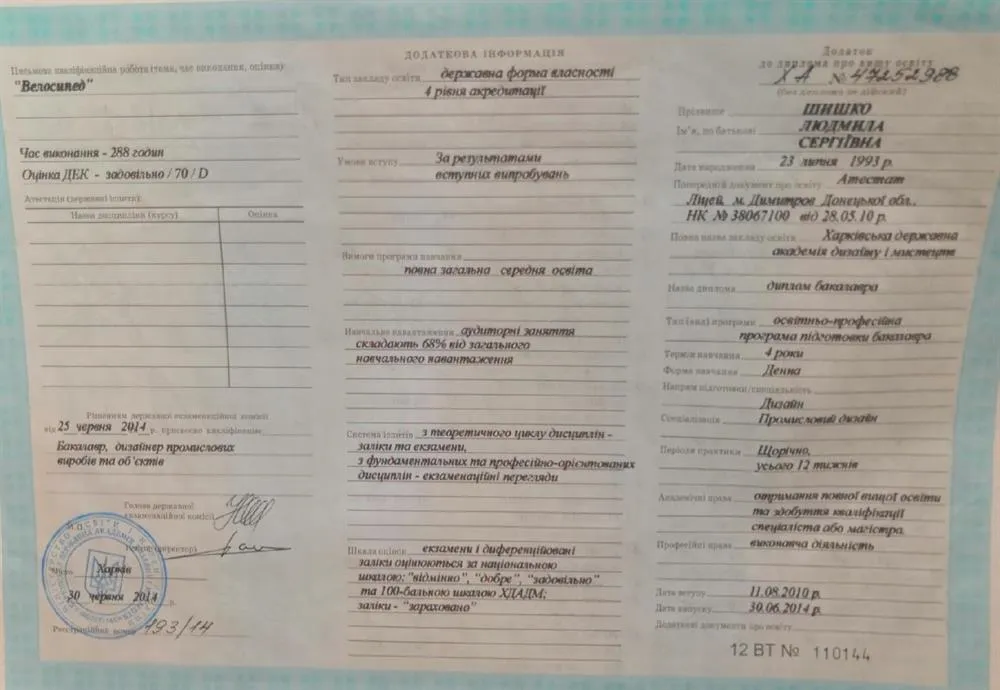 Письмова кваліфікаційна робота (тема, час виконання, оцінка)
"Велосипед"
Час виконання - 288 годин
Оцінка ДЕК - задовільно / 70 / D
Атестація (державні іспити):
Назва дисципліни (курсу) Оцінка
Рішенням державної екзаменаційної комісії
від 25 червня 2014 р. присвоєно кваліфікацію
Бакалавр, дизайнер промислових
виробів та об'єктів
Голова державної
екзаменаційної комісії
(директор)
Харків
30 червня 2014 р.
Реєстраційний номер 193/14
ДОДАТКОВА ІНФОРМАЦІЯ
Тип закладу освіти державна форма власності
4 рівня акредитації
Умови вступу За результатами
вступних випробувань
Вимоги програми навчання
повна загальна середня освіта
Навчальне навантаження аудиторні заняття
складають 68% від загального
навчального навантаження
Система іспитів з теоретичного циклу дисциплін -
заліки та екзамени,
з фундаментальних та професійно-орієнтованих
дисциплін - екзаменаційні перегляди
Шкала оцінок екзамени і диференційовані
заліки оцінюються за національною
шкалою: "відмінно", "добре", "задовільно"
та 100-бальною шкалою ХДАДМ;
заліки - "зараховано"
Додаток
до диплома про вищу освіту
ХА № 47252988
(без диплома не дійсний)
Прізвище ШИШКО
Ім'я, по батькові ЛЮДМИЛА
СЕРГІЇВНА
Дата народження 23 липня 1993 р.
Попередній документ про освіту Атестат
Ліцей м. Димитров Донецької обл.,
НК № 38067100 від 28.05.10 р.
Повна назва закладу освіти Харківська державна
академія дизайну і мистецтв
Назва диплома диплом бакалавра
Тип (вид) програми освітньо-професійна
програма підготовки бакалавра
Термін навчання 4 роки
Форма навчання Денна
Напрям підготовки/спеціальність
Дизайн
Спеціалізація Промисловий дизайн
Періоди практики Щорічно,
усього 12 тижнів
Академічні права отримання повної вищої освіти
та здобуття кваліфікації
спеціаліста або магістра.
Професійні права виконавча діяльність
Дата вступу 11.08.2010 р.
Дата випуску 30.06.2014 р.
Додаткові документи про освіту
12 ВТ № 110144